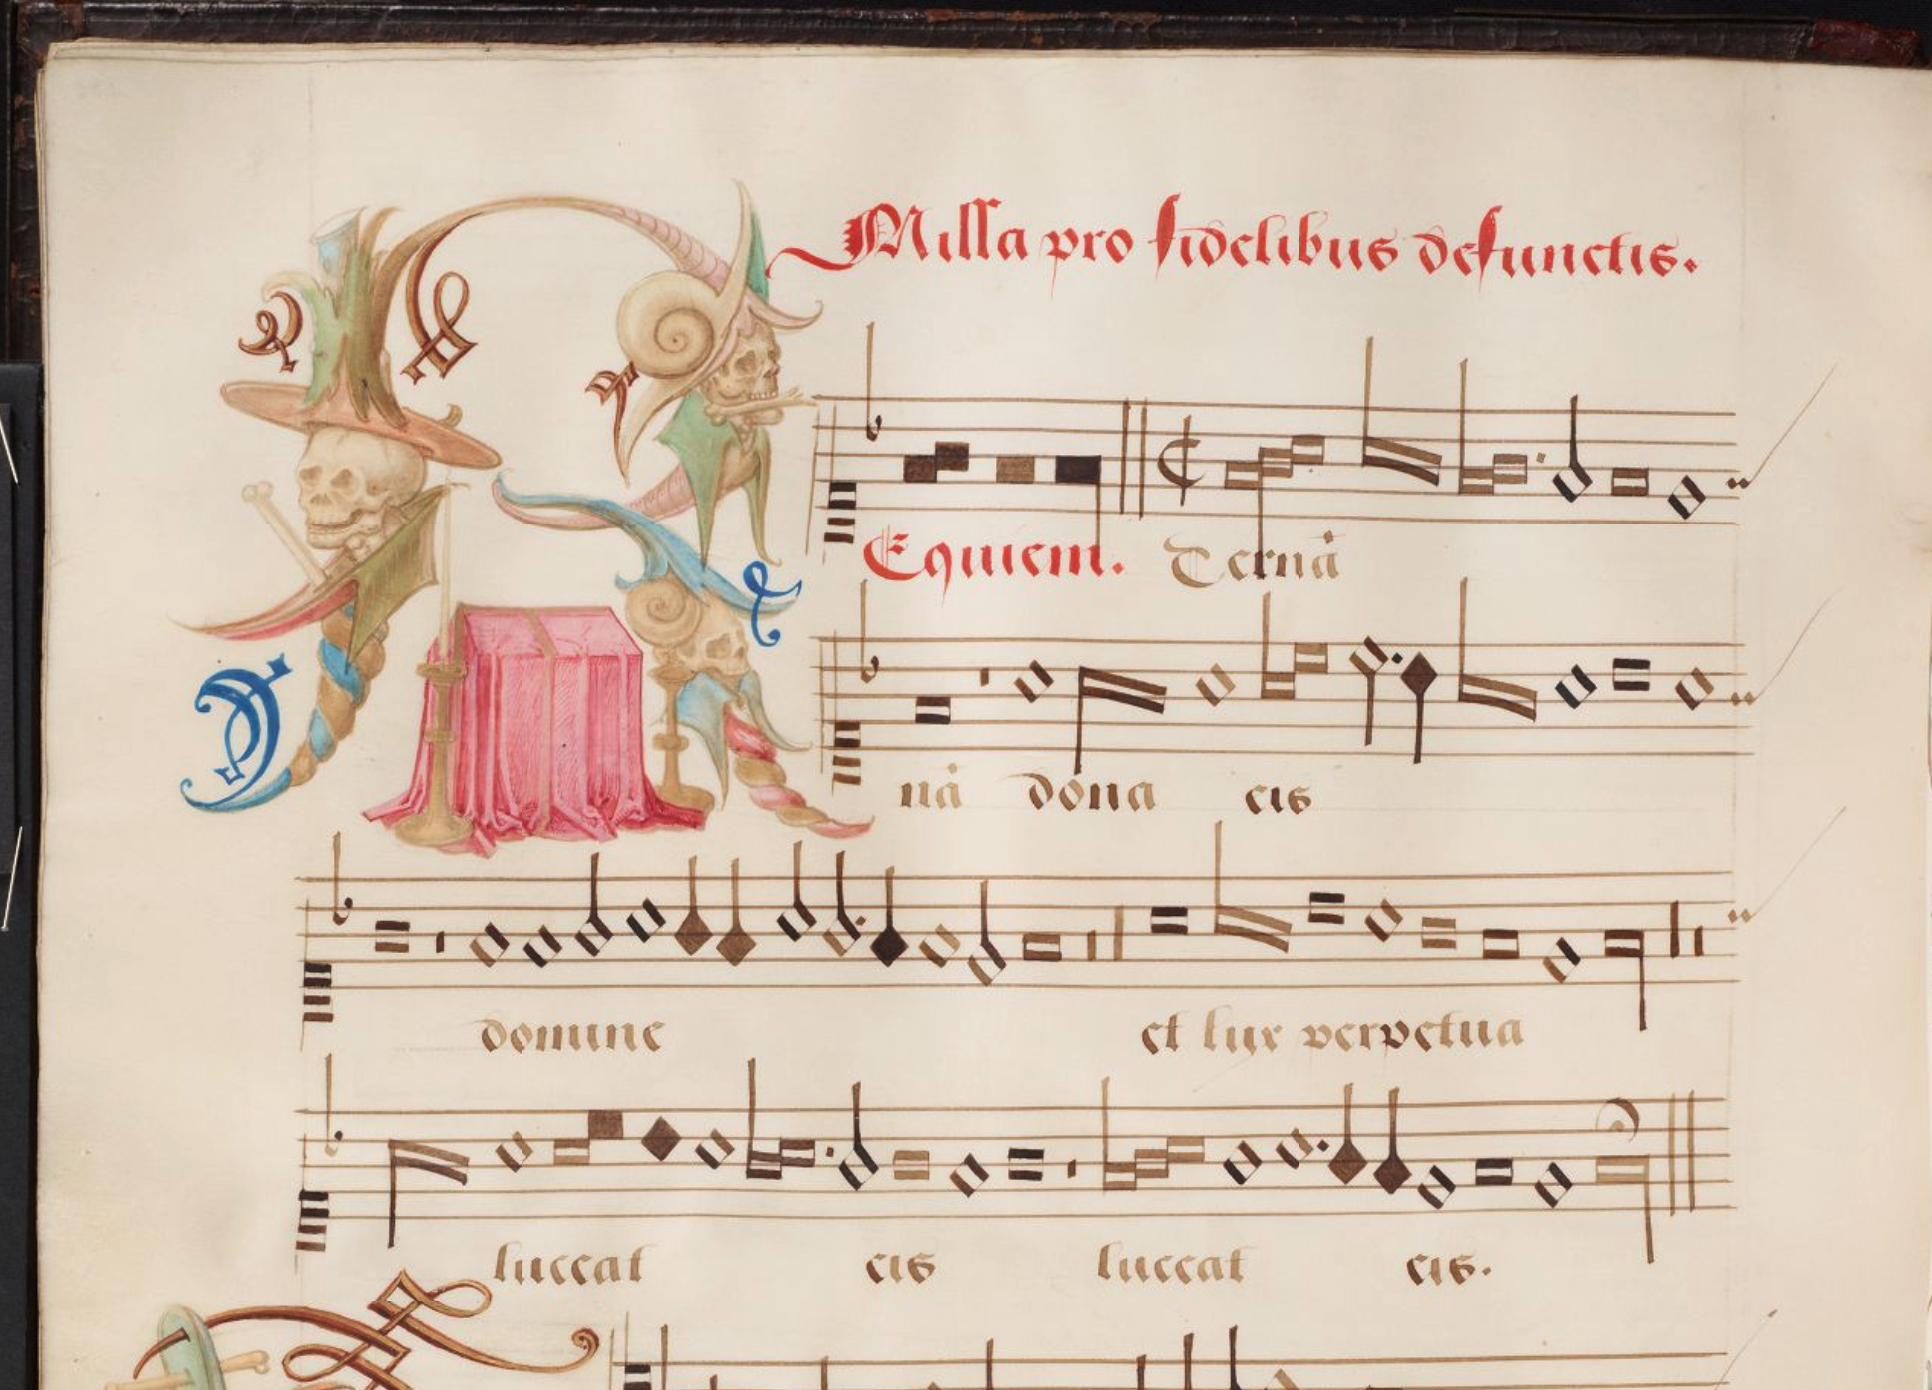 Missa pro fidelibus defunctis.
Requiem. Eternā
nā dona eis
domine et lux perpetua
luceat eis luceat eis.